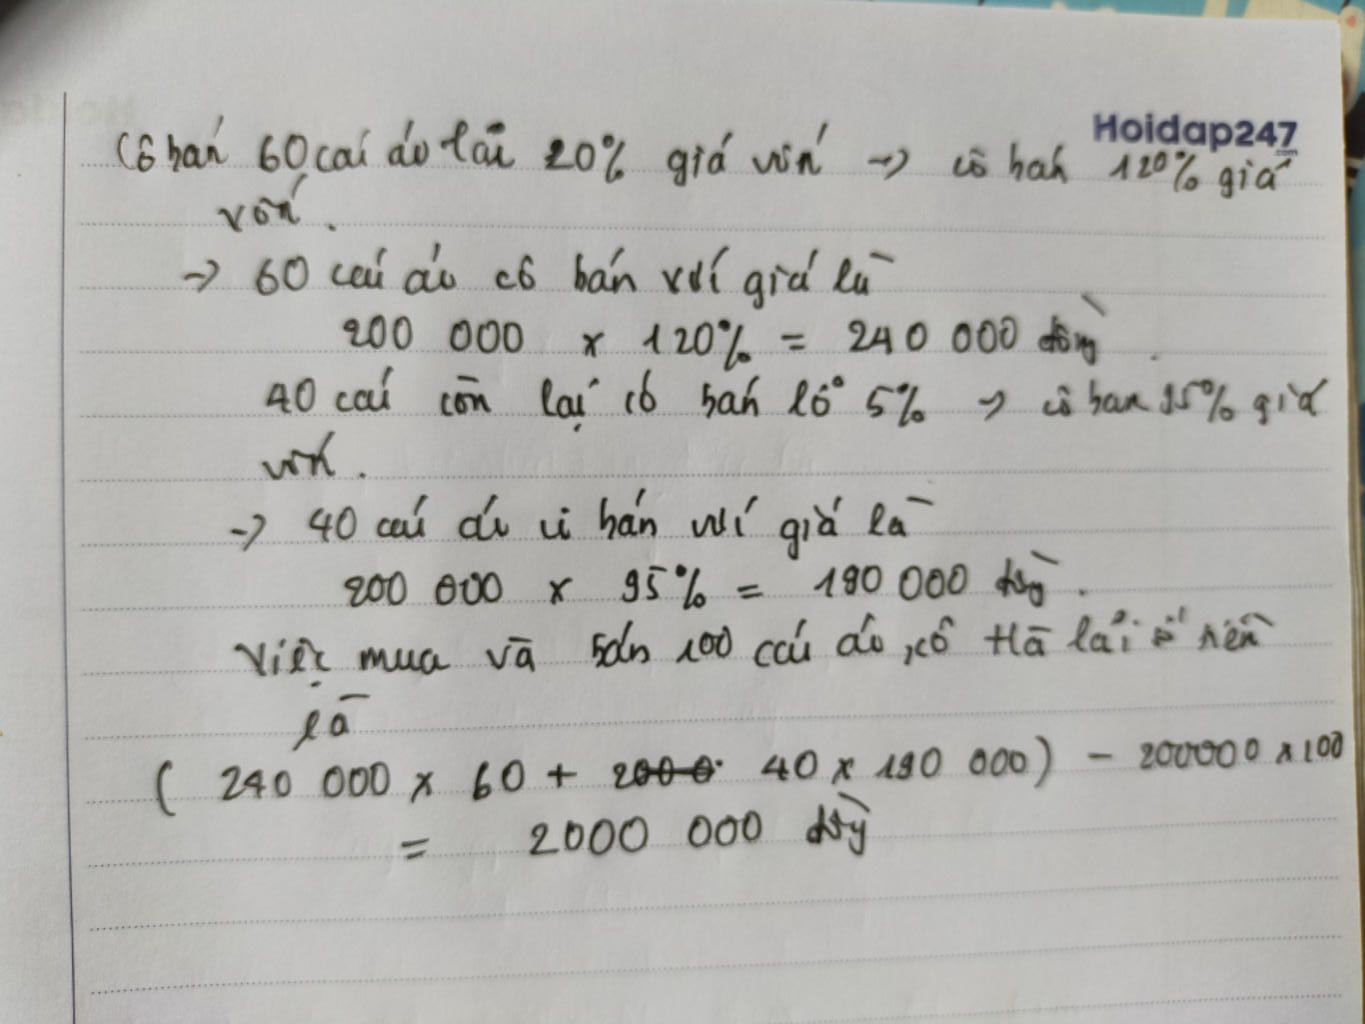 Hoidap247
.com
Cô bán 60 cái áo lãi 20% giá vốn → cô bán 120% giá
vốn.
→ 60 cái áo cô bán với giá là
200 000 x 120% = 240 000 đồng.
40 cái còn lại cô bán lỗ 5% → cô bán 95% giá
vốn.
→ 40 cái áo cô bán với giá là
200 000 x 95% = 190 000 đồng.
Việc mua và bán 100 cái áo, cô Hà lãi số tiền
là
( 240 000 x 60 + 40 x 190 000) - 200000 x 100
= 2000 000 đồng